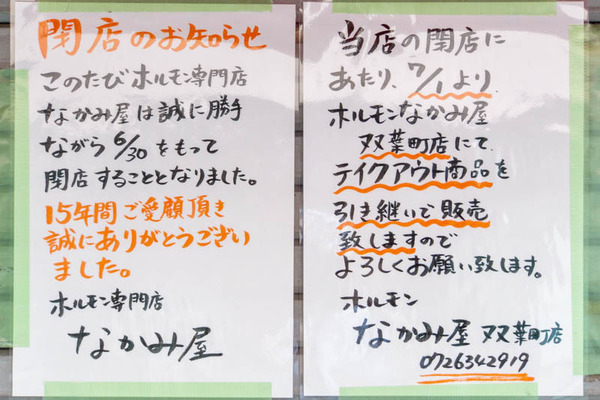 閉店のお知らせ
このたびホルモン専門店
なかみ屋は誠に勝手
ながら6/30をもって
閉店することとなりました。
15年間ご愛顧頂き
誠にありがとうござい
ました。
ホルモン専門店
なかみ屋
当店の閉店に
あたり、7/1より、
ホルモンなかみ屋
双葉町店にて
テイクアウト商品を
引き継いで販売
致しますので
よろしくお願い致します。
ホルモン
なかみ屋 双葉町店
0726342919